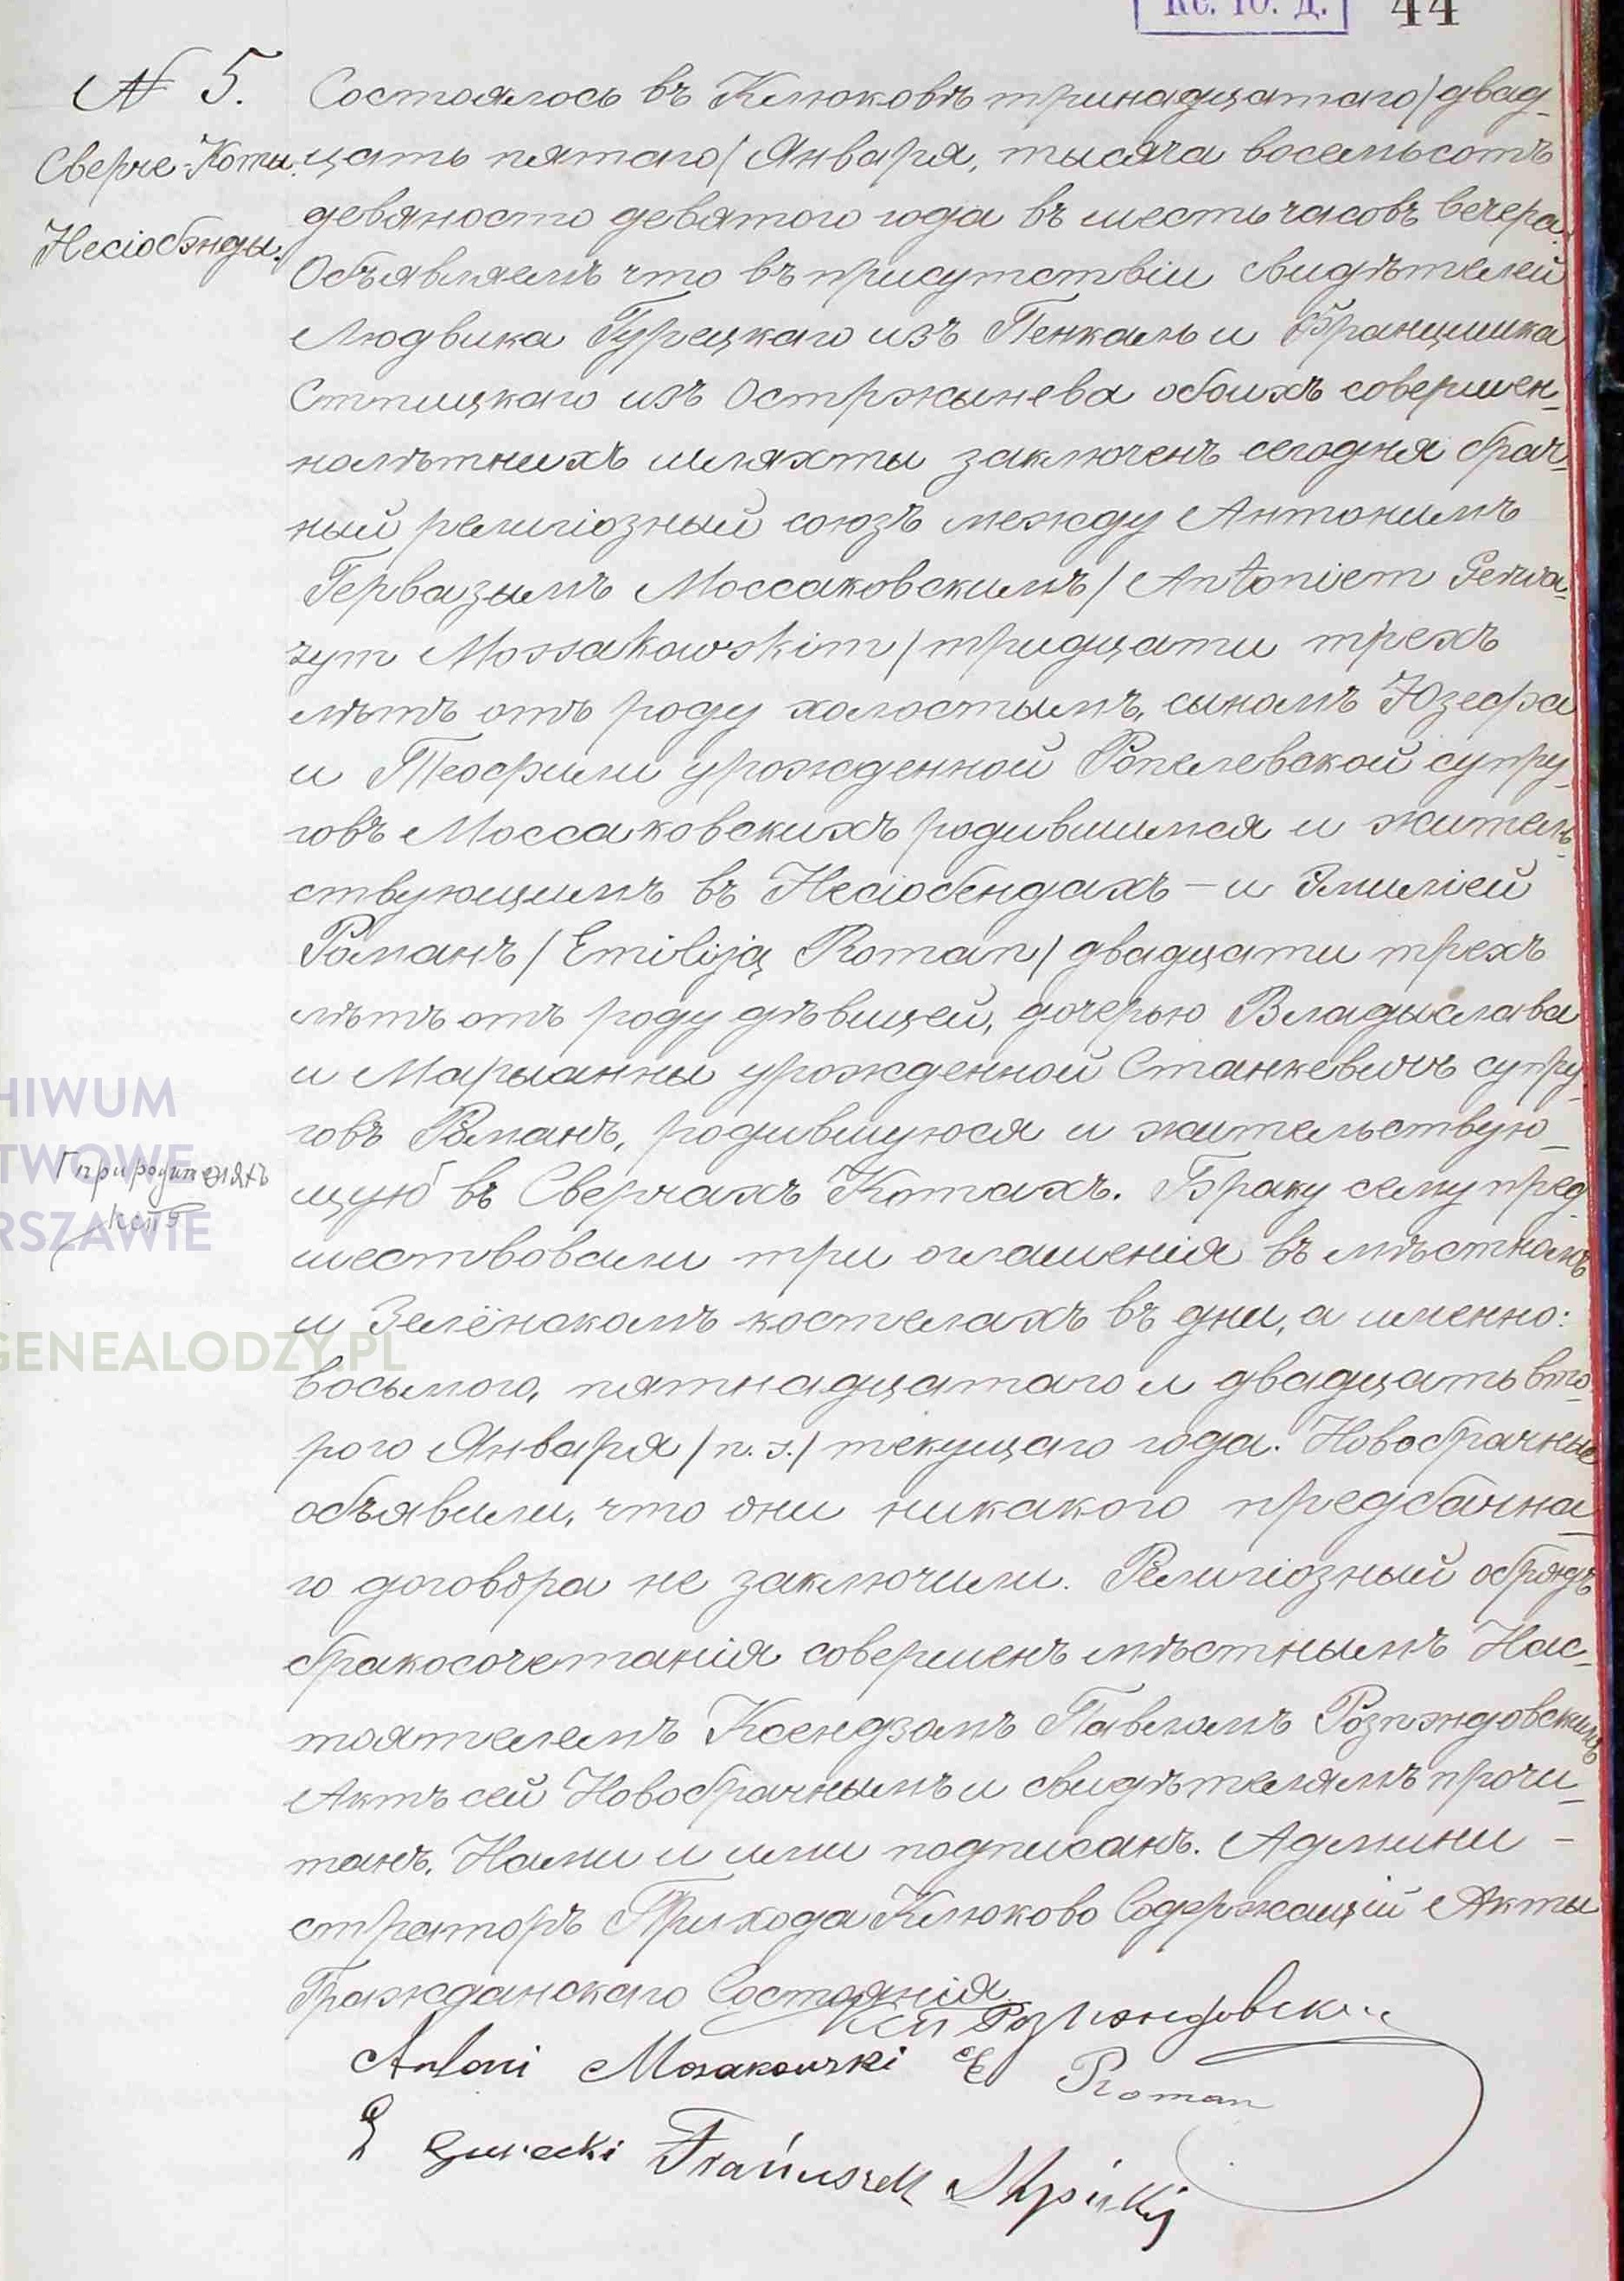 Кс. Ю. Д. 44
№ 5.
Сверче-Коты.
Несіобэнды.
Состоялось въ Клюковѣ тринадцатаго/двад-
цать пятаго/ Января, тысяча восемьсотъ
девяносто девятого года въ шесть часовъ вечера.
Объявляемъ что въ присутствіи свидѣтелей
Людвика Гурецкаго изъ Пенкаль и Францишка
Стпицкаго изъ Остржынева обоихъ совершен-
нолѣтнихъ шляхты заключенъ сегодня брач-
ный религіозный союзъ между Антонимъ
Гервазымъ Моссаковскимъ/ Antoniem Gerwa-
zym Mossakowskim/ тридцати трехъ
лѣтъ отъ роду холостымъ, сыномъ Юзефа
и Теофили урожденной Ропелевской супру-
говъ Моссаковскихъ родившимся и житель-
ствующимъ въ Несіобендахъ – и Эмиліей
Романъ/ Emiliją Roman/ двадцати трехъ
лѣтъ отъ роду дѣвицей, дочерью Владыслава
и Марыанны урожденной Станкевичъ супру-
говъ Романъ, родившуюся и жительствую-
щую въ Сверчахъ Котахъ. Браку сему пред-
При родителяхъ
КсПР
шествовали три оглашенія въ мѣстномъ
и Зелёнскомъ костелахъ въ дни, а именно:
восьмого, пятнадцатаго и двадцать вто-
рого Января/ n. s./ текущаго года. Новобрачные
объявили, что они никакого предбачна-
го договора не заключили. Религіозный обрядъ
бракосочетанія совершенъ мѣстнымъ Нас-
тоятелемъ Ксендзомъ Павломъ Розпэндовскимъ
Актъ сей Новобрачнымъ и свидѣтелямъ прочи-
танъ, Нами и ими подписанъ. Админи-
страторъ Прихода Клюково Содержащій Акты
Гражданскаго Состоянія
КсП Розпэндовски
Antoni Mosakowski E Roman
L Gurecki Franciszek Stpicki
HIWUM
TWOWE
RSZAWIE
GENEALODZY.PL